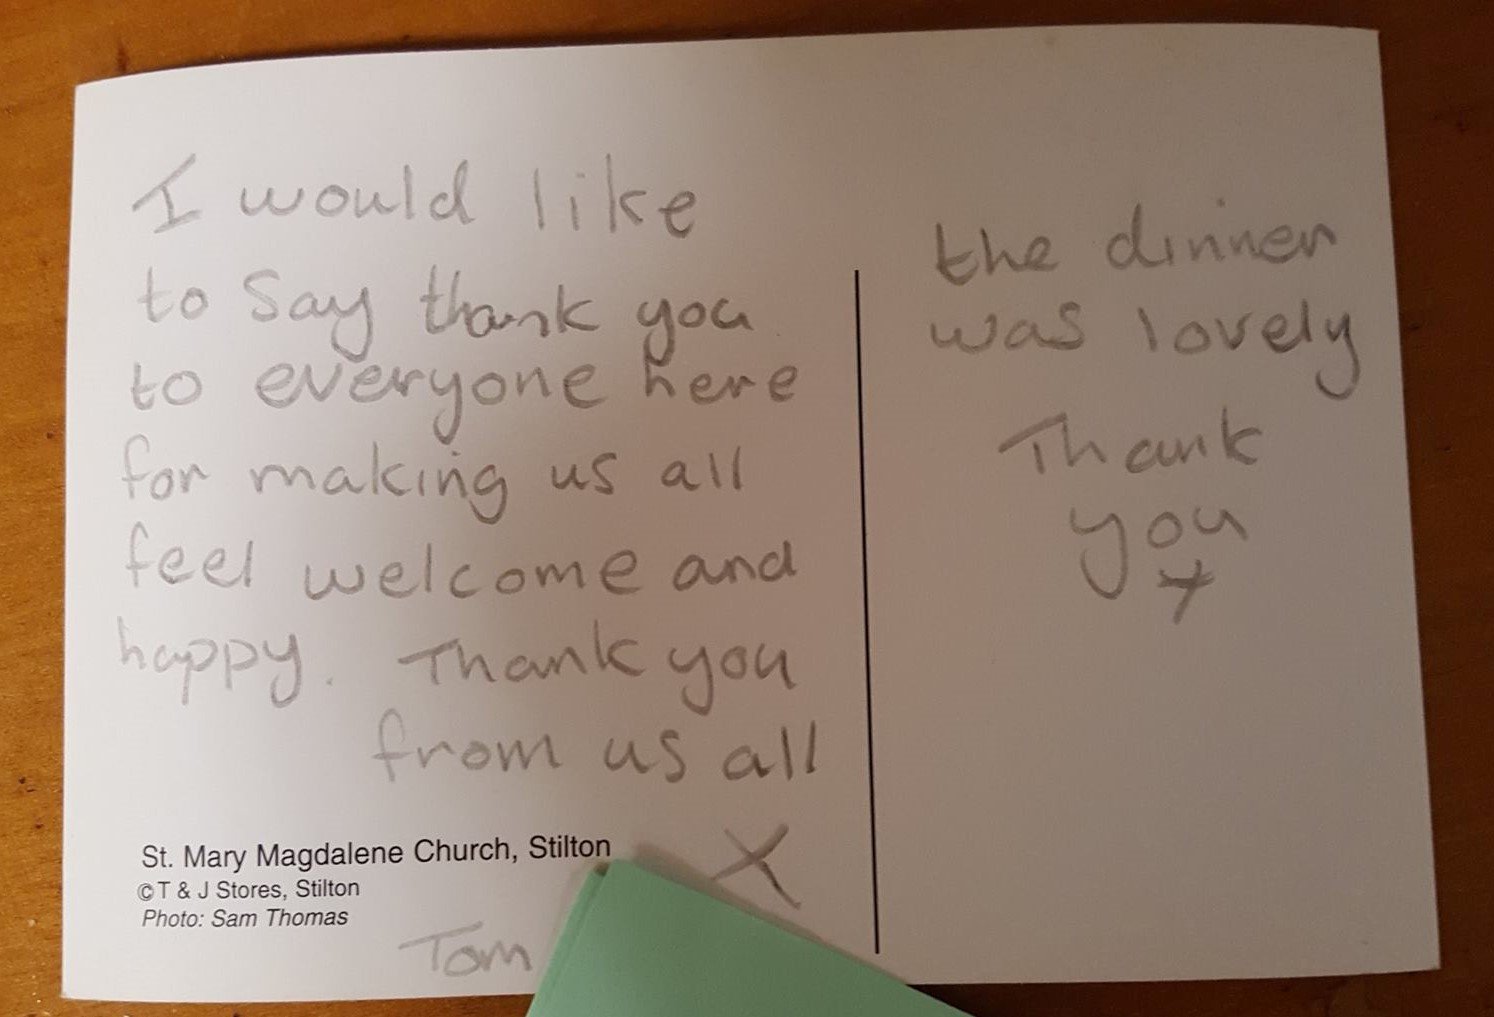 I would like
to say thank you
to everyone here
for making us all
feel welcome and
happy. Thank you
from us all
X
St. Mary Magdalene Church, Stilton
©T & J Stores, Stilton
Photo: Sam Thomas
Tom
the dinner
was lovely
Thank
you
x